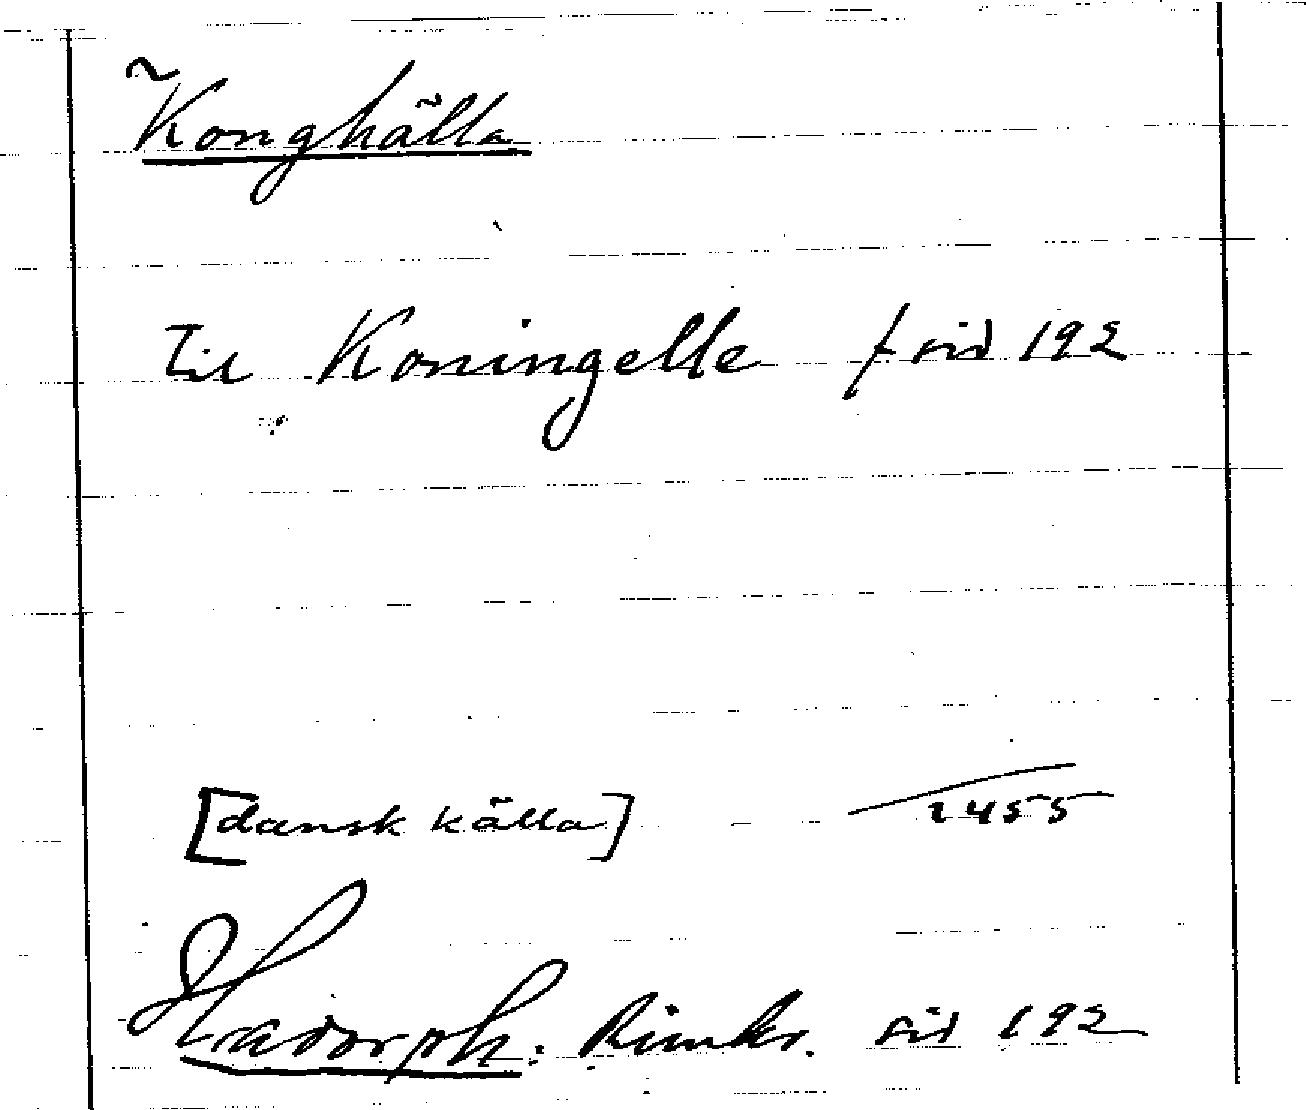 Konghälla
til Koningelle / sid 192
[dansk källa] 1455
Hadorph: Rimkr. sid 192